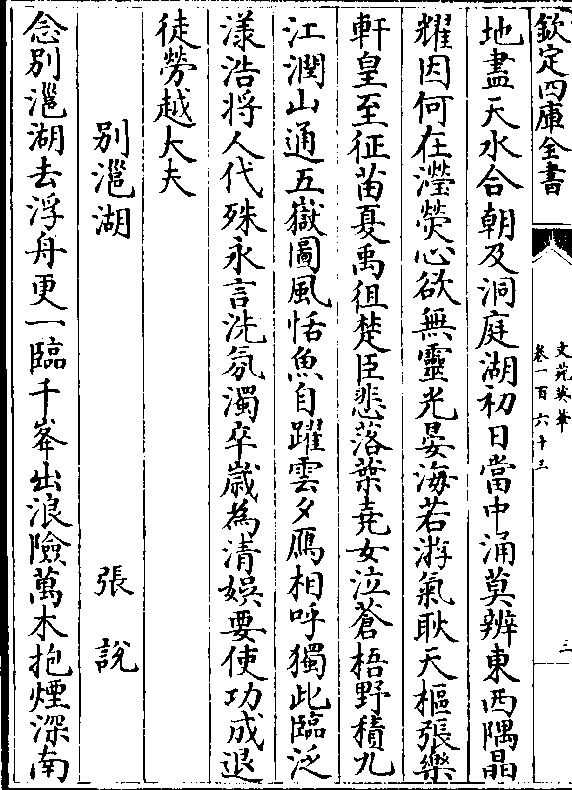 欽定四庫全書
文苑英華
卷一百六十三
三
地盡天水合朝及洞庭湖初日當中涌莫辨東西隅晶
耀因何在瀅熒心欲無靈光晏海若游氣耿天樞張樂
軒皇至征苗夏禹徂楚臣悲落葉堯女泣蒼梧野積九
江潤山通五嶽圖風恬魚自躍雲夕鴈相呼獨此臨泛
漾浩將人代殊永言洗氛濁卒歲為清娯要使功成退
徒勞越大夫
別㴩湖
張說
念別㴩湖去浮舟更一臨千峯出浪險萬木抱煙深南